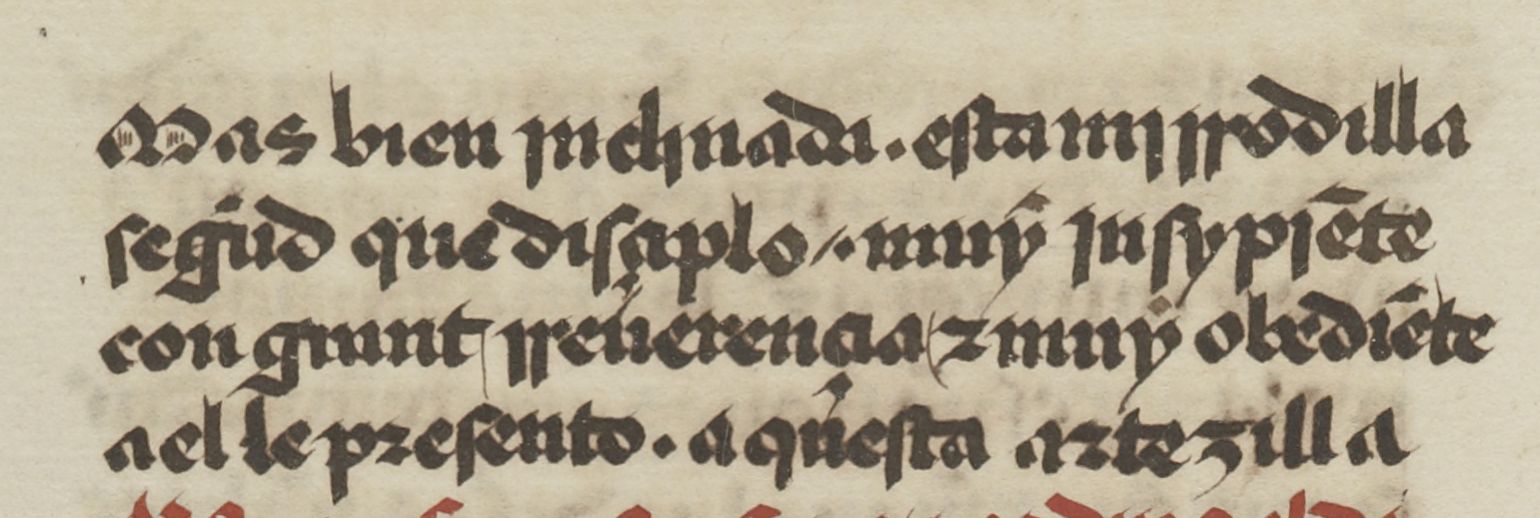 Mas bien jnclinada . esta mj rrodilla
segũd que disçiplo . muy jnsypjẽte
con grunt rreuerençia ⁊ muy obediẽte
a el le presento . aquesta artezilla